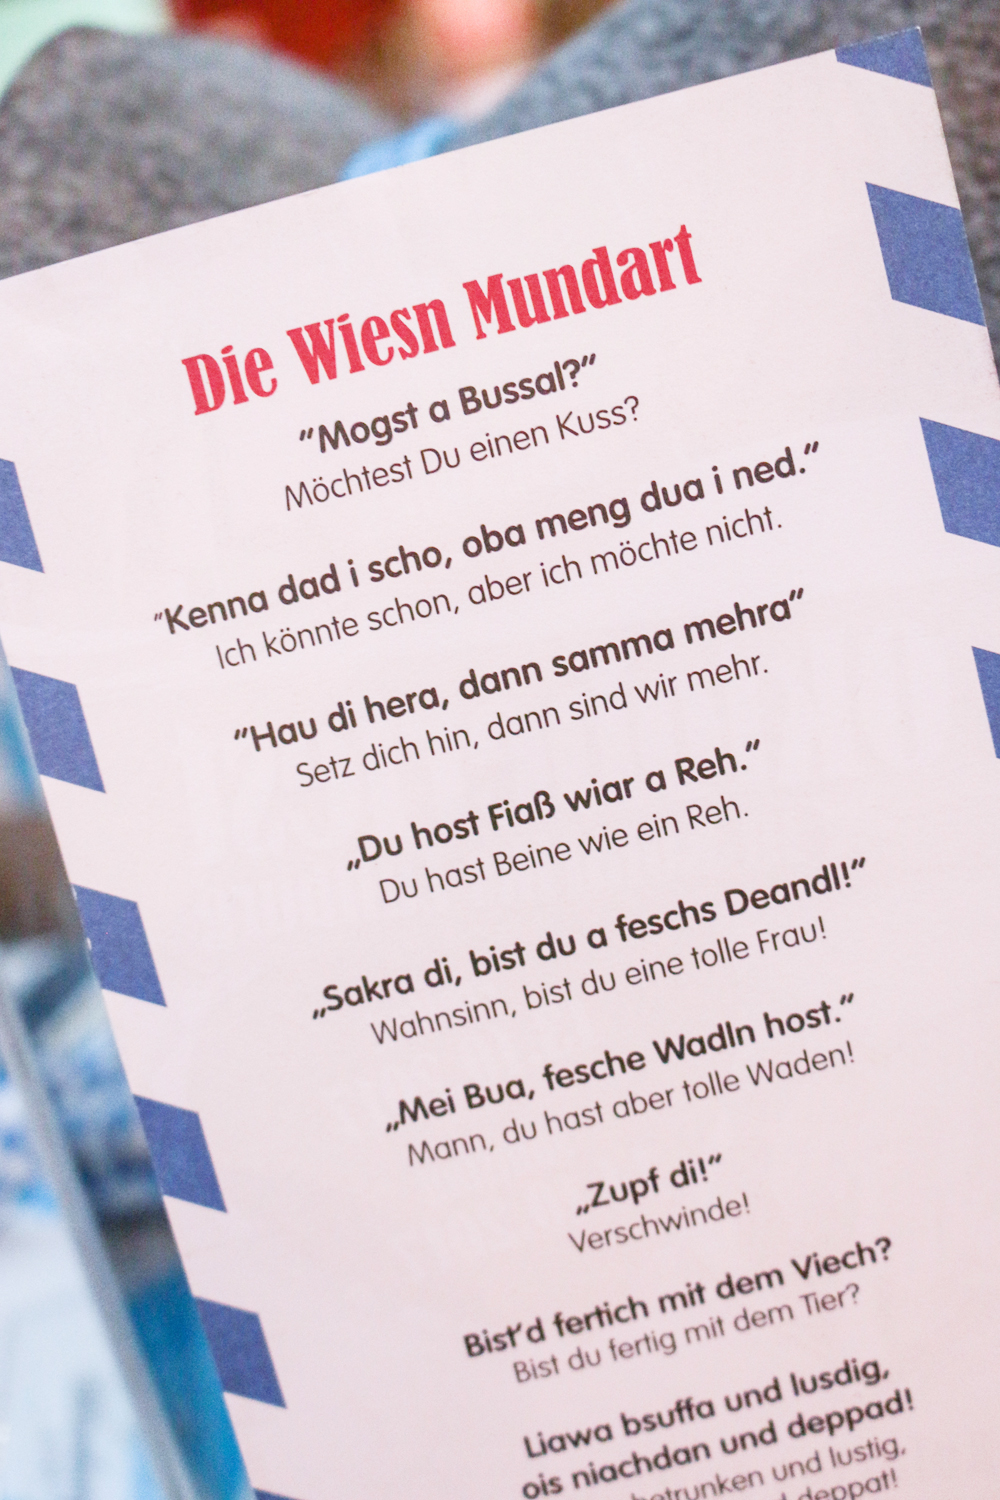 Die Wiesn Mundart
"Mogst a Bussal?"
Möchtest Du einen Kuss?
"Kenna dad i scho, oba meng dua i ned."
Ich könnte schon, aber ich möchte nicht.
"Hau di hera, dann samma mehra"
Setz dich hin, dann sind wir mehr.
„Du host Fiaß wiar a Reh.”
Du hast Beine wie ein Reh.
„Sakra di, bist du a feschs Deandl!”
Wahnsinn, bist du eine tolle Frau!
„Mei Bua, fesche Wadln host.”
Mann, du hast aber tolle Waden!
„Zupf di!”
Verschwinde!
Bist'd fertich mit dem Viech?
Bist du fertig mit dem Tier?
Liawa bsuffa und lusdig,
ois niachdan und deppad!
betrunken und lustig,
deppat!